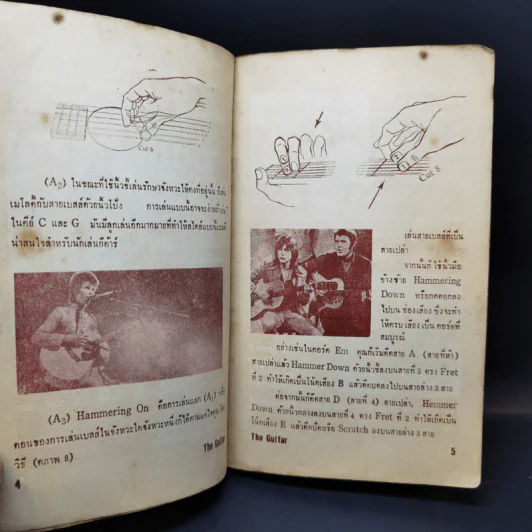 Cut 6
(A₂) ในขณะที่ใช้นิ้วชี้เล่นรักษาจังหวะให้คงที่อยู่นั้น
เมโลดี้กับสายเบสส์ด้วยนิ้วโป้ง การเล่นแบบนี้อาจจะง่าย
ในคีย์ C และ G มันมีลูกเล่นอีกมากมายที่ทำให้สไตล์
น่าสนใจสำหรับนักเล่นกีต้าร์
(A₃) Hammering On คือการเล่นแยก (A₁) หรือ
ตอนของการเล่นเบสส์ในจังหวะใดจังหวะหนึ่งก็ได้ตามแต่
วิธี (ดูภาพ 8)
The Guitar
4
Cut 8
เล่นสายเบสส์ที่เป็น
สายเปล่า
จากนั้นก็ใช้นิ้วมือ
ข้างซ้าย Hammering
Down หรือกดลง
ไปบน ช่องเสียง ซึ่งจะทำ
ให้ครบ เสียง เป็น คอร์ดที่
สมบูรณ์
อย่างเช่นในคอร์ด Em คุณก็เริ่มดีดสาย A (สายที่ห้า)
สายเปล่าแล้ว Hammer Down ด้วยนิ้วชี้ลงบนสายที่ 5 ตรง Fret
ที่ 2 ทำให้เกิดเป็นโน้ตเสียง B แล้วดีดลงไปบนสายล่าง 3 สาย
ต่อจากนั้นก็ดีดสาย D (สายที่ 4) สายเปล่า, Hemmer
Down ด้วยนิ้วกลางลงบนสายที่ 4 ตรง Fret ที่ 2 ทำให้เกิดเป็น
โน้ตเสียง E แล้วดีดปัดหรือ Scratch ลงบนสายล่าง 3 สาย
The Guitar
5